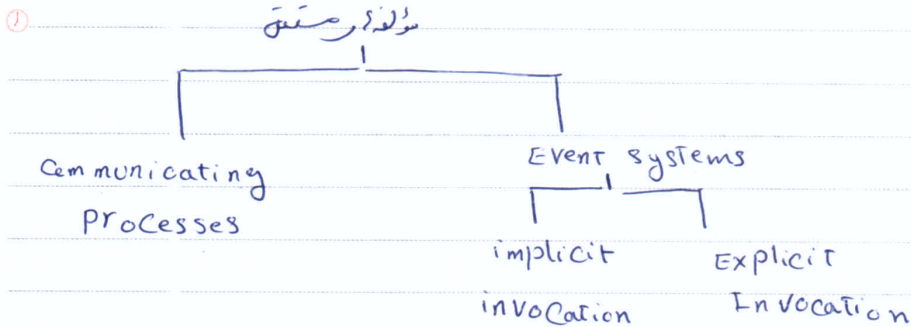 1
مؤلفه‌های مستقل
Communicating
Processes
Event systems
implicit
invocation
Explicit
Invocation